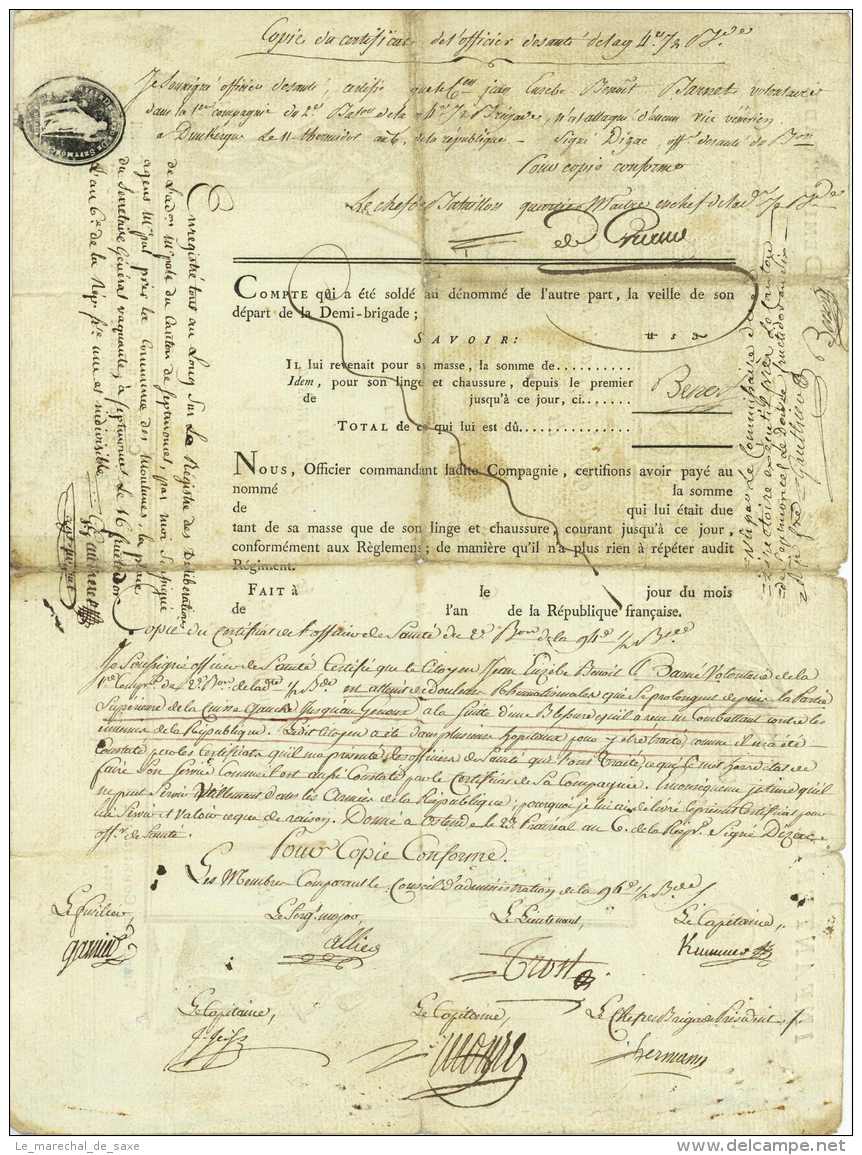 Copie du certificat de l'officier de santé de la 94e 1/2 Bde
Je soussigné officier de santé, certifie que le Cen jean Eusebe Benoît Barnet volontaire
dans la 1ere compagnie du 2e Baton de la 94e 1/2 Brigade, n'est attaqué d'aucun vice vénérien
a Dunckerque le 11 thermidor an 6 de la république - Signé Dizac, offr de santé du Bon
Pour copie conforme
Le chef de Bataillon quartier Maitre en chef de la 1/2 Bde
Enregistré tout au Long Sur Le Registre des Déliberations
de L'adon mpale du Canton de septmoncel, par moi soussigné
agent mpal près la Commune des Moulunes, la place
du Secretaire Général vaquante, à septmoncel le 16 fructidor
L'an 6e de la Rép. fse une et indivisible
Vu par Le Commissaire du
Directoire exécutif près Le Canton
de Septmoncel Le douze fructidor an six
Benoit
COMPTE qui a été soldé au dénommé de l'autre part, la veille de son
départ de la Demi-brigade ;
SAVOIR :
IL lui revenait pour sa masse, la somme de..........
Idem, pour son linge et chaussure, depuis le premier
de jusqu'à ce jour, ci.....
TOTAL de ce qui lui est dû..............
NOUS, Officier commandant ladite Compagnie, certifions avoir payé au
nommé la somme
de qui lui était due
tant de sa masse que de son linge et chaussure, courant jusqu'à ce jour,
conformément aux Règlemens ; de manière qu'il n'a plus rien à répéter audit
Régiment.
FAIT à le jour du mois
de l'an de la République française.
Copie du Certificat de l'officier de Santé du 2e Bon de la 94e 1/2 Bde
Je Soussigné officier de Santé Certifie que le Citoyen Jean Euzèbe Benoit Barné Volontaire de la
1re Compie du 2e Bon de la 94e 1/2 Bde est atteint de douleurs Rhumatismales qui se prolongent depuis la Partie
Supérieure de la Cuisse Gauche Jusqu'au Genoux a la suite d'une Blessure qu'il a reçu en Combattant contre les
ennemis de la République. Ledit Citoyen a été dans plusieurs hopitaux pour y etre traité comme il m'a été
Constaté par les Certificats qu'il m'a présenté des officiers de Santé qui l'ont traité, ce qui le met hors d'état de
faire Son Service Comme il est aussi Constaté par le Certificat de Sa Compagnie. En conséquence j'estime qu'il
ne peut Servir Utillement dans les Armées de la République ; pourquoi je lui ai délivré le présent Certificat pour
lui Servir et Valoir ce que de raison. Donné à Ostende le 23 Prairéal an 6 de la Répe Signé Dizac
offr de Santé.
Pour Copie Conforme.
Les Membres Composant le Conseil d'administration de la 94e 1/2 Bde
Le Fusilier, Le Sergt major Le Lieutenant, Le Capitaine,
allier Trost Kummer
Le Capitaine, Le Capitaine, Le Chef de Brigade Président
hermann
Le_marechal_de_saxe
www.delcampe.net